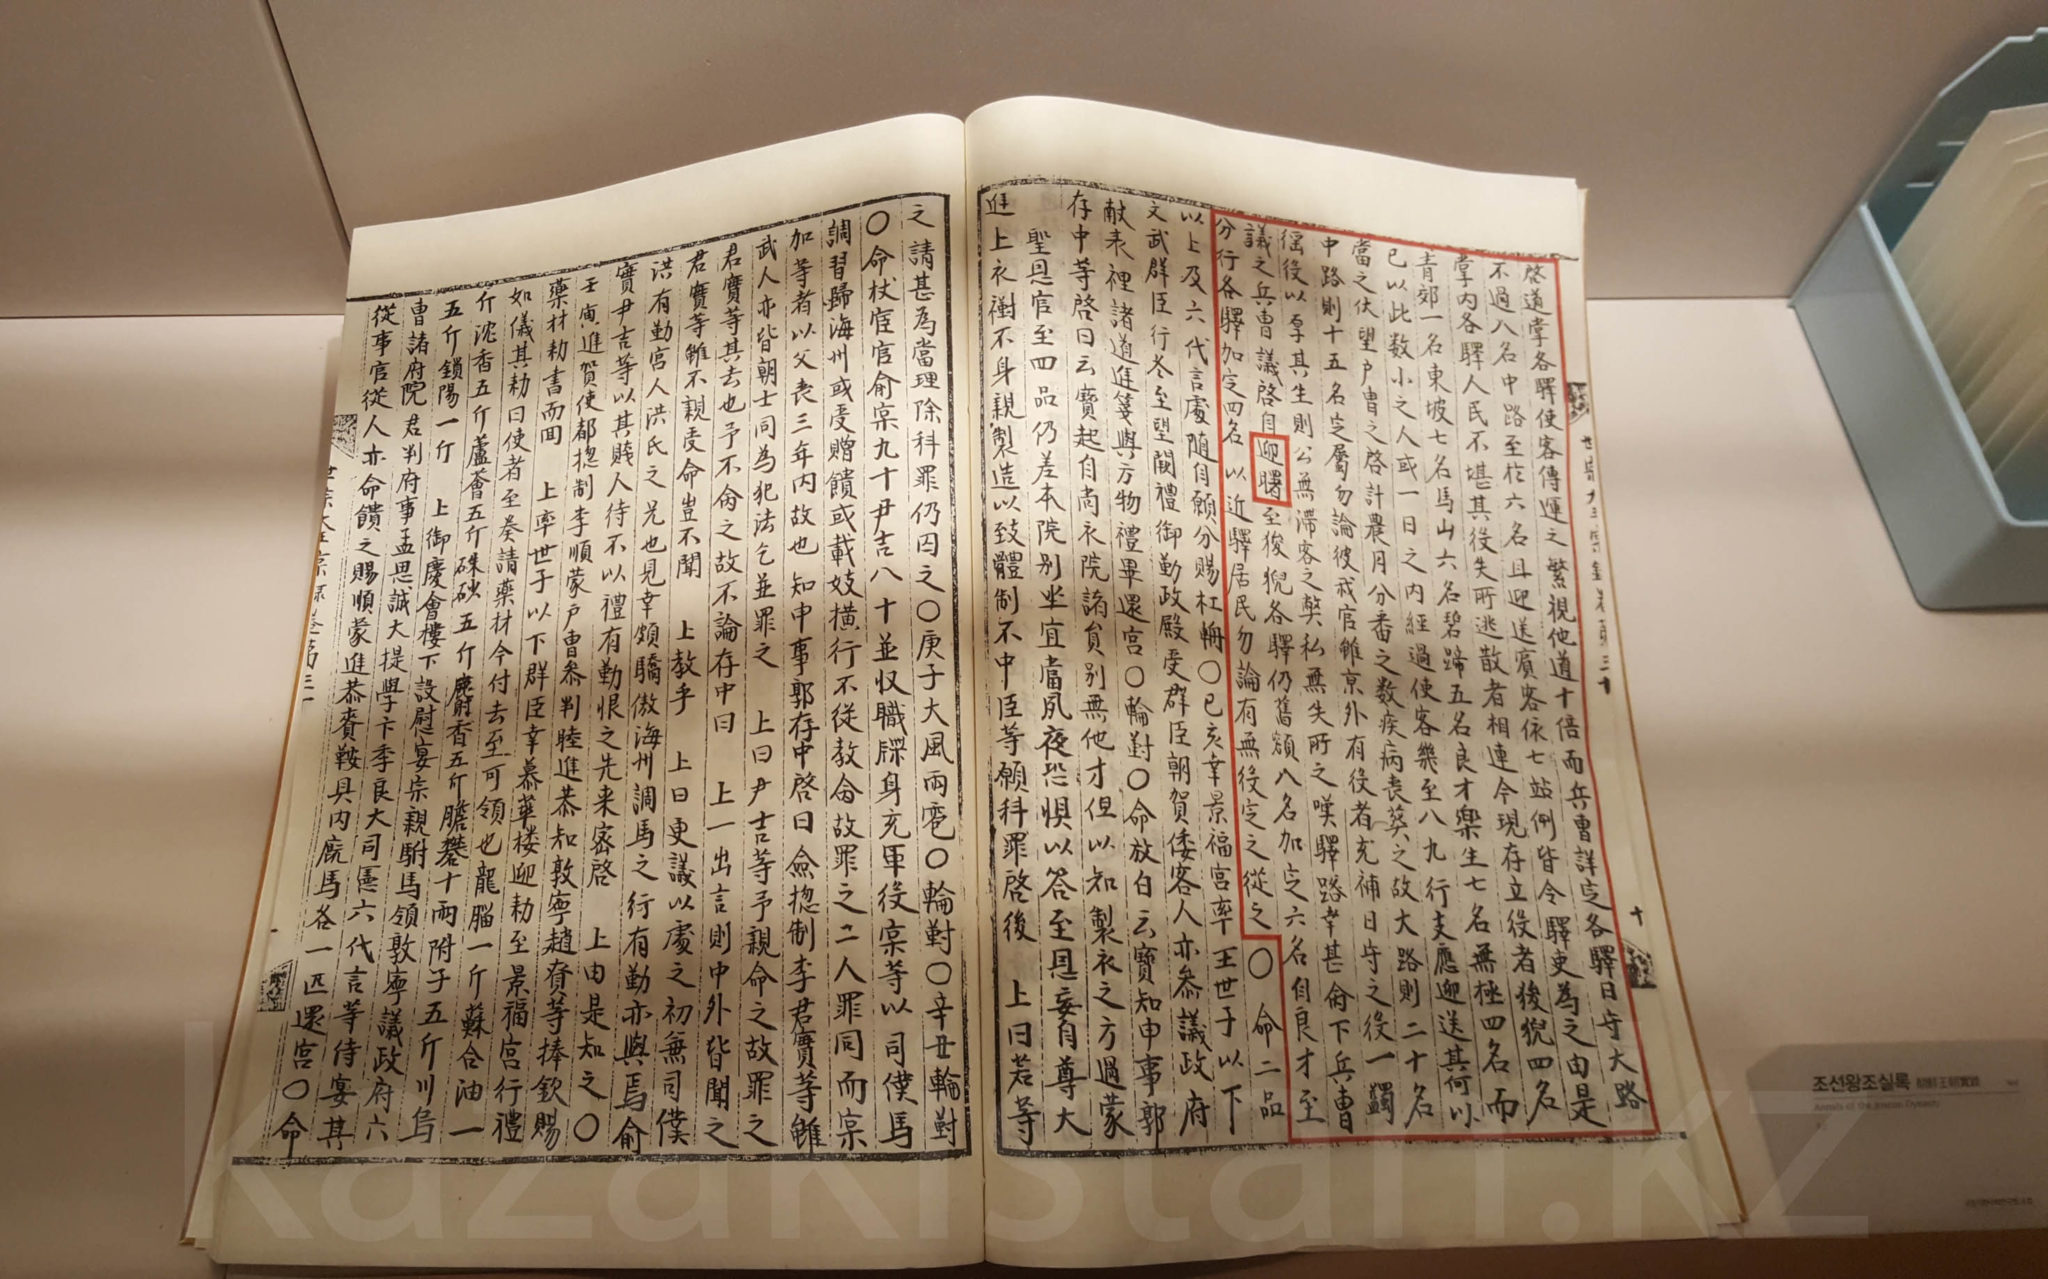 啓道掌各驛使客傳運之繁視他道十倍而兵曹詳定各驛日守大路
不過八名中路至於六名且迎送賓客依七站例皆令驛吏為之由是
掌內各驛人民不堪其役失所逃散者相連今現存立役者狻猊四名
青郊一名東坡七名馬山六名碧蹄五名良才樂生七名無極四名而
已以此数小之人或一日之內經過使客幾至八九行支應迎送其何以
當之伏望戶曹之啓計農月分番之数疾病丧葬之故大路則二十名
中路則十五名定屬勿論彼我官雖京外有役者充補日守之役一蠲
徭役以厚其生則公無滯客之弊私無失所之嘆驛路幸甚命下兵曹
議之兵曹議啓自迎曙至狻猊各驛仍舊額八名加定六名自良才至
分行各驛加定四名以近驛居民勿論有無役定之從之〇命二品
以上及六代言處随自願分賜杠冊〇己亥幸景福宮率王世子以下
文武群臣行冬至望闕禮御勤政殿受群臣朝賀倭客人亦叅議政府
献表裡諸道進箋與方物禮畢還宮〇輪對〇命放白云寶知申事郭
存中等啓曰云寶起自尚衣院諸貟别無他才但以知製衣之方過蒙
聖恩官至四品仍差本院别坐宜當夙夜恐惧以答至恩妄自尊大
進上衣襨不身親製造以致體制不中臣等願科罪啓後 上曰若等
之請甚為當理除科罪仍囚之〇庚子大風雨雹〇輪對〇辛丑輪對
〇命杖宦官俞寀九十尹吉八十並収職牒身充軍役寀等以司僕馬
調習歸海州或受贈饋或載妓橫行不從教命故罪之二人罪同而寀
加等者以父丧三年內故也知申事郭存中啓曰僉捴制李君實等雖
武人亦皆朝士同為犯法乞並罪之 上曰尹吉等予親命之故罪之
君實等其去也予不命之故不論存中曰 上一出言則中外皆聞之
君實等雖不親受命豈不聞 上教乎 上曰更議以處之初無司僕
洪有勤宮人洪氏之兄也見幸頗驕傲海州調馬之行有勤亦與焉俞
實尹吉等以其賎人待不以禮有勤恨之先来密啓 上由是知之〇
壬寅進賀使都捴制李順蒙戶曹叅判睦進恭知敦寧趙賚等捧欽賜
藥材勑書而囬 上率世子以下群臣幸慕華樓迎勑至景福宮行禮
如儀其勑曰使者至奏請藥材今付去至可領也龍腦一斤蘇合油一
斤沈香五斤蘆薈五斤硃砂五斤麝香五斤膽礬十兩附子五斤川烏
五斤鎖陽一斤 上御慶會樓下設慰宴宗親駙馬領敦寧議政府六
曹諸府院君判府事孟思誠大提學卞季良大司憲六代言等侍宴其
從事官從人亦命饋之賜順蒙進恭賚鞍具內廐馬各一匹還宮〇命
조선왕조실록 朝鮮王朝實錄
Annals of the Joseon Dynasty
kazakistan.kz